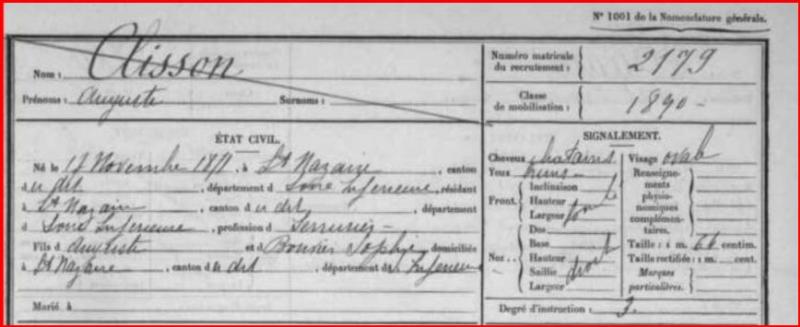 N° 1001 de la Nomenclature générale.
Nom : Clisson
Prénoms : Auguste Surnoms :
Numéro matricule du recrutement : 2179
Classe de mobilisation : 1890
ÉTAT CIVIL.
Né le 17 Novembre 1871, à St Nazaire, canton
du dit, département d Loire Inférieure, résidant
à St Nazaire, canton du dit, département
d Loire Inférieure, profession d Serrurier
Fils d Auguste et d Bouvier Sophie domiciliés
à St Nazaire, canton du dit, département d Inférieure
Marié à
SIGNALEMENT.
Cheveux chatains Visage ovale
Yeux bruns
Front. Inclinaison
Hauteur
Largeur
Nez. Dos
Base
Hauteur
Saillie droit
Largeur
Renseignements physionomiques complémentaires.
Taille : 1 m. 66 centim.
Taille rectifiée : 1 m. cent.
Marques particulières.
Degré d'instruction : 3.